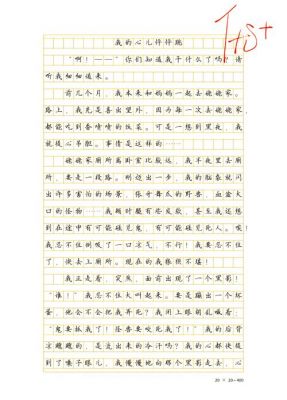 优+
我的心儿怦怦跳
“啊！——”你们知道我干什么了吗？请
听我细细道来。
前几个月，我本来和妈妈一起去姥姥家。
路上，我先是喜出望外，因为每一次去姥姥家，
都能吃到香喷喷的饭菜。可是一想到黑夜，我
就提心吊胆。事情是这样的……
姥姥家厕所离卧室比较远，我半夜里去厕
所，要走一段路。刚迈出一步，我的脑海就闪
出许多害怕的场景，张牙舞爪的野兽，血盆大
口的怪物……我顿时觉有些发软，甚至我还想
到在途中有可能碰见鬼，有可能碰见死人。唉！
我忍不住倒吸了一口凉气，不行！我要忍不住
了，快去上厕所。现在的我狼狈不堪！
我正走着，突然，面前出现了一个黑影！
“谁！”我忍不住大叫起来。要是蹦出一个坏
蛋，他会不会把我弄死？我闭上眼胡乱喊着：
“鬼要抓我了！怪兽要咬死我了！”我的后背
凉飕飕的，是流出来的冷汗吗？我的心都快提
到了嗓子眼儿，我慢慢地向那个黑影是去，心
20 × 20=400